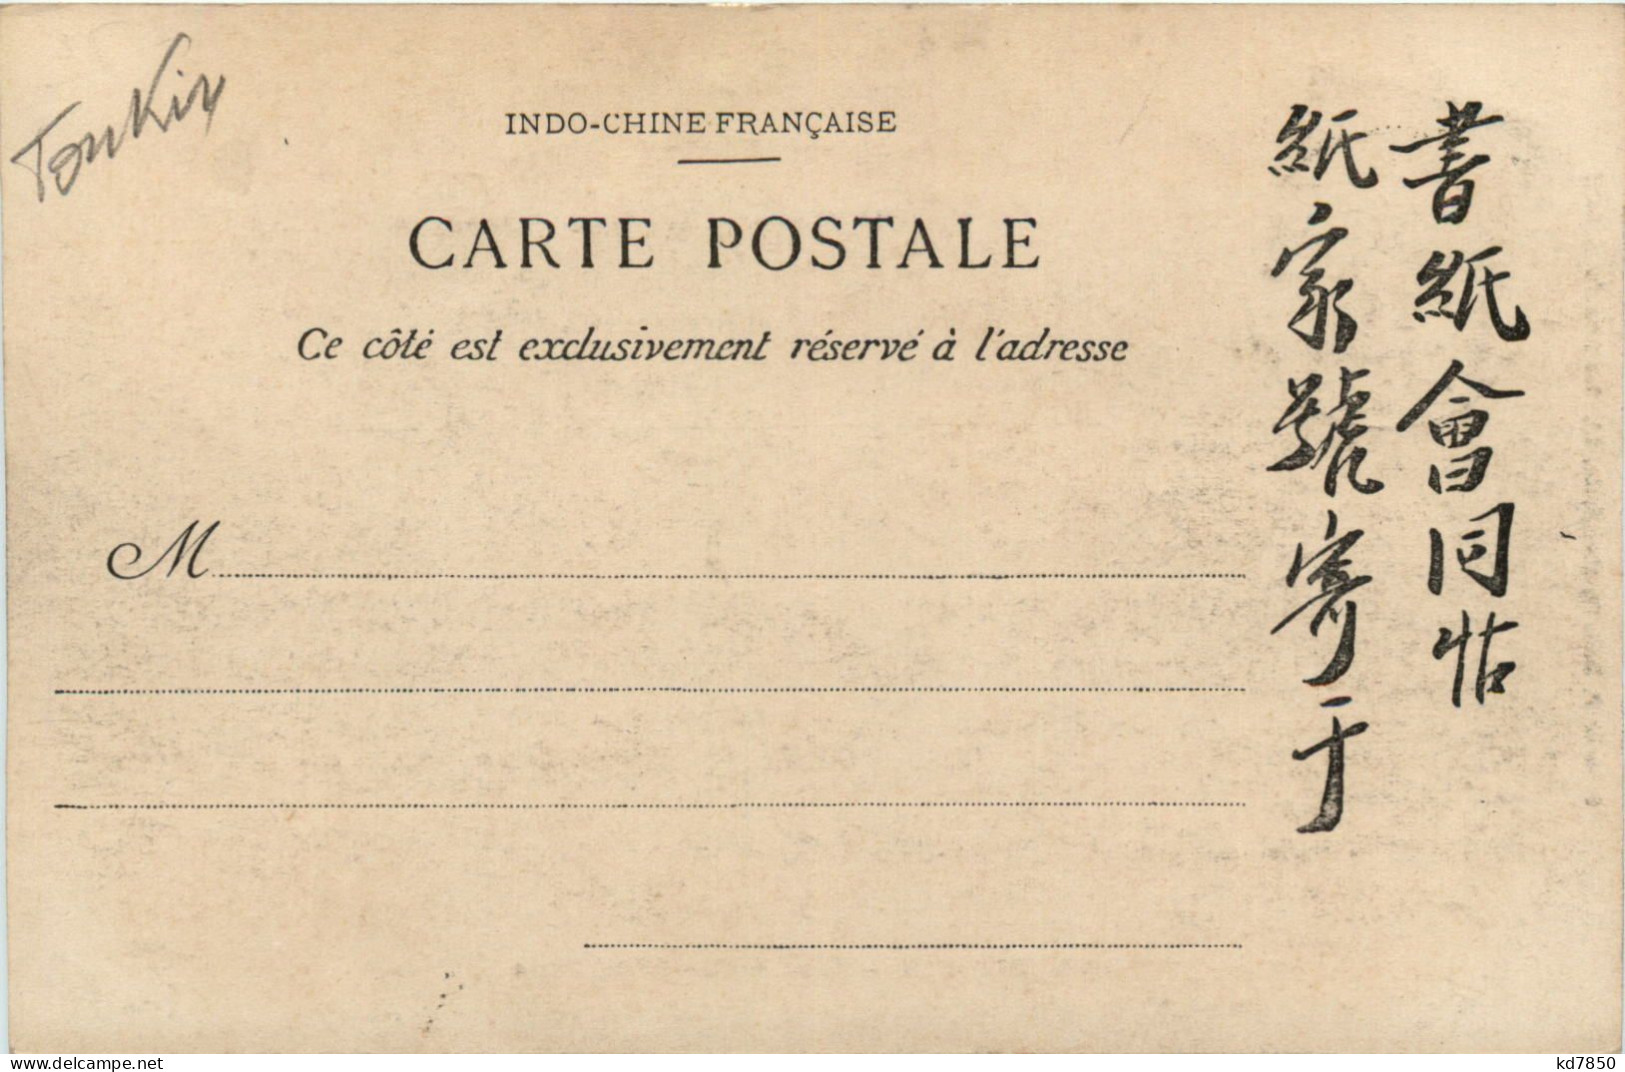 Tonkin
INDO-CHINE FRANÇAISE
CARTE POSTALE
Ce côté est exclusivement réservé à l'adresse
M
書紙會同帖
紙家號寄于
www.delcampe.net
kd7850